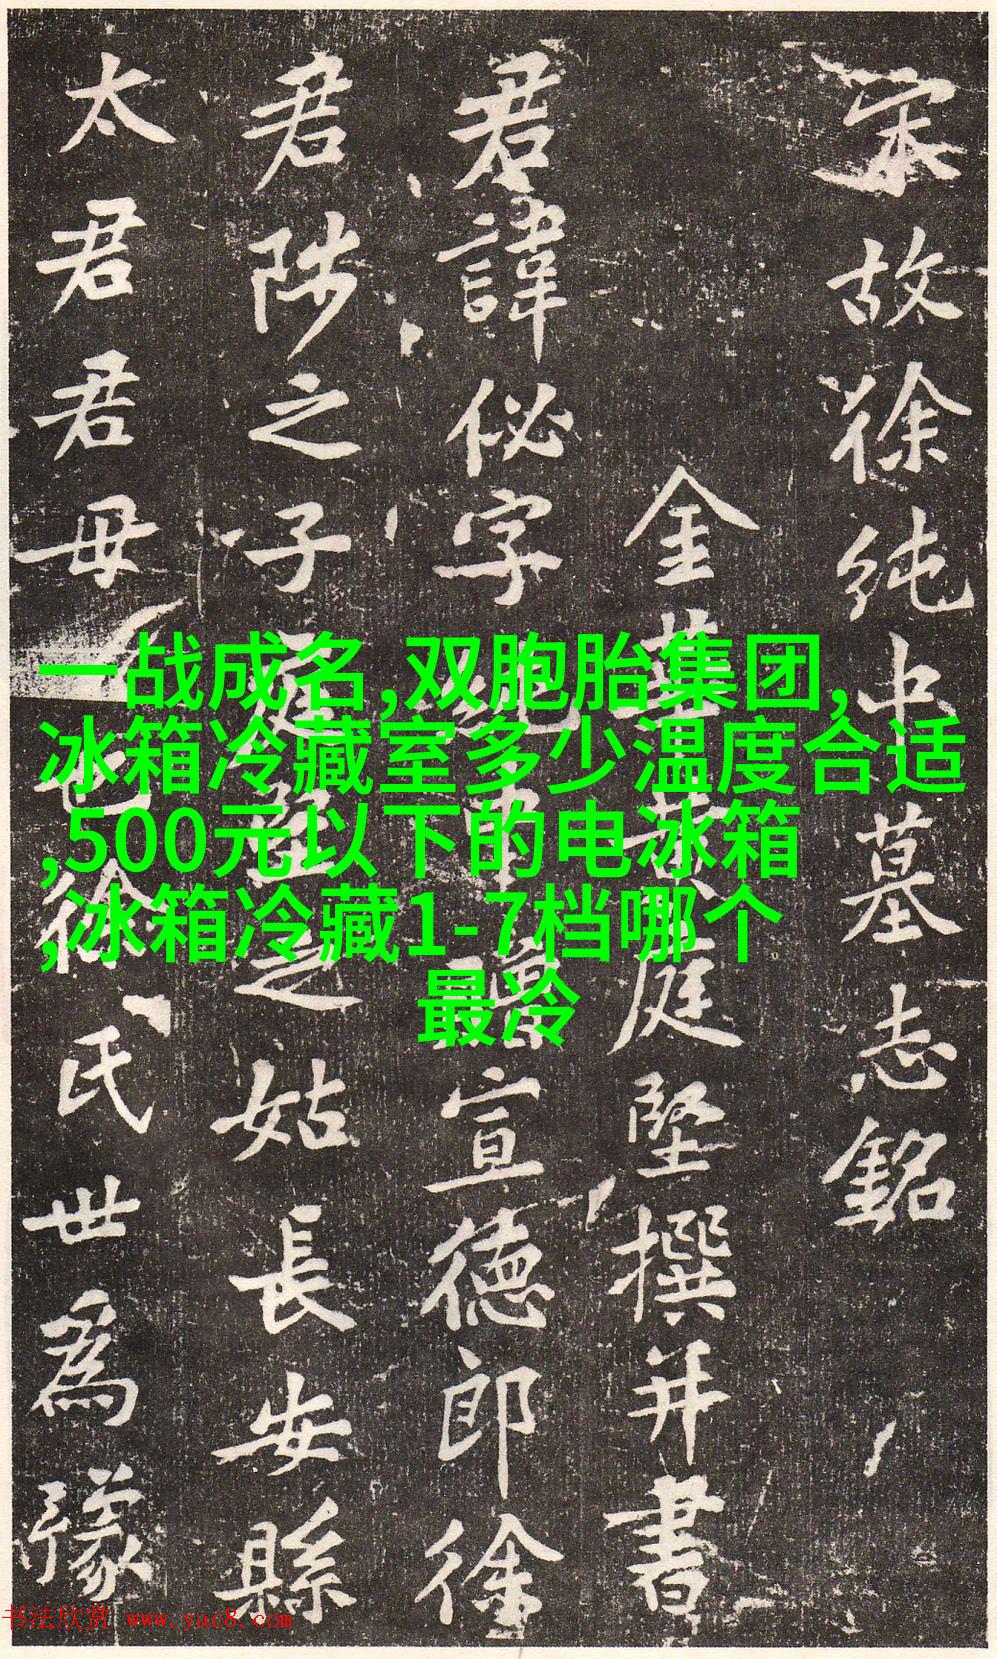 宋故徐纯中墓志銘
金華黄庭堅撰并書
君諱佖字纯中贈宣德郎徐
君陟之子庭堅之姑長安縣
太君君毋也徐氏世為豫
一战成名,双胞胎集团,
冰箱冷藏室多少温度合适
,500元以下的电冰箱
,冰箱冷藏1-7档哪个
最冷
书法欣赏 www.yac8.com